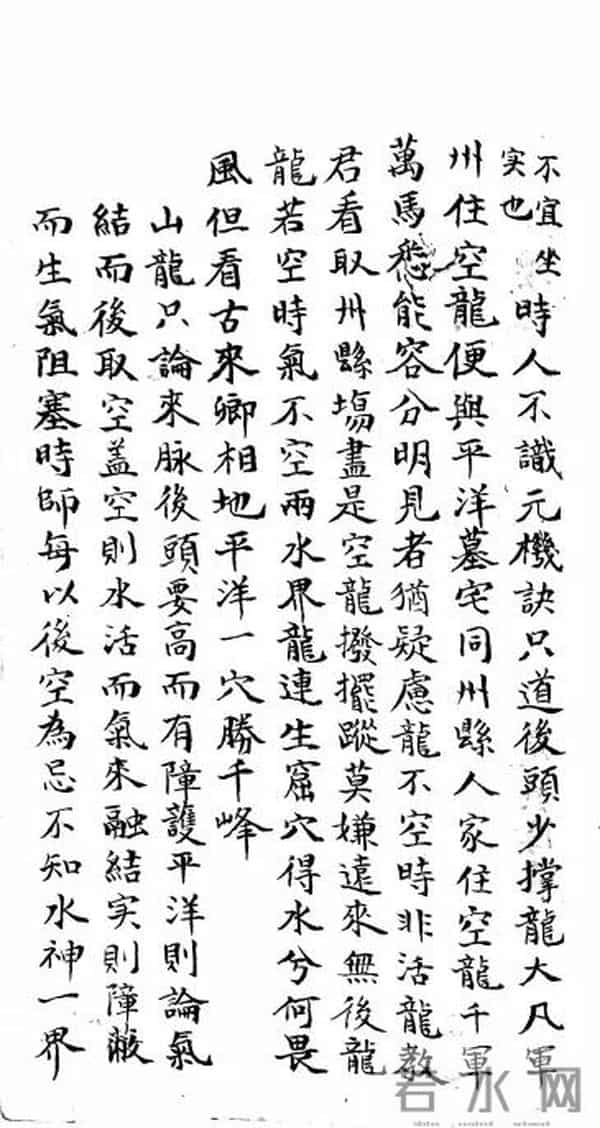 不宜坐
实也
時人不識元機訣只道後頭少撐龍大凡軍
州住空龍便與平洋墓宅同州縣人家住空龍千軍
萬馬悉能容分明見者猶疑慮龍不空時非活龍教
君看取州縣塲盡是空龍撥擺蹤莫嫌遠來無後龍
龍若空時氣不空兩水界龍連生窟穴得水兮何畏
風但看古來卿相地平洋一穴勝千峰
山龍只論來脉後頭要高而有障護平洋則論氣
結而後取空盖空則水活而氣來融結实則障蔽
而生氣阻塞時師每以後空為忌不知水神一界
若水网